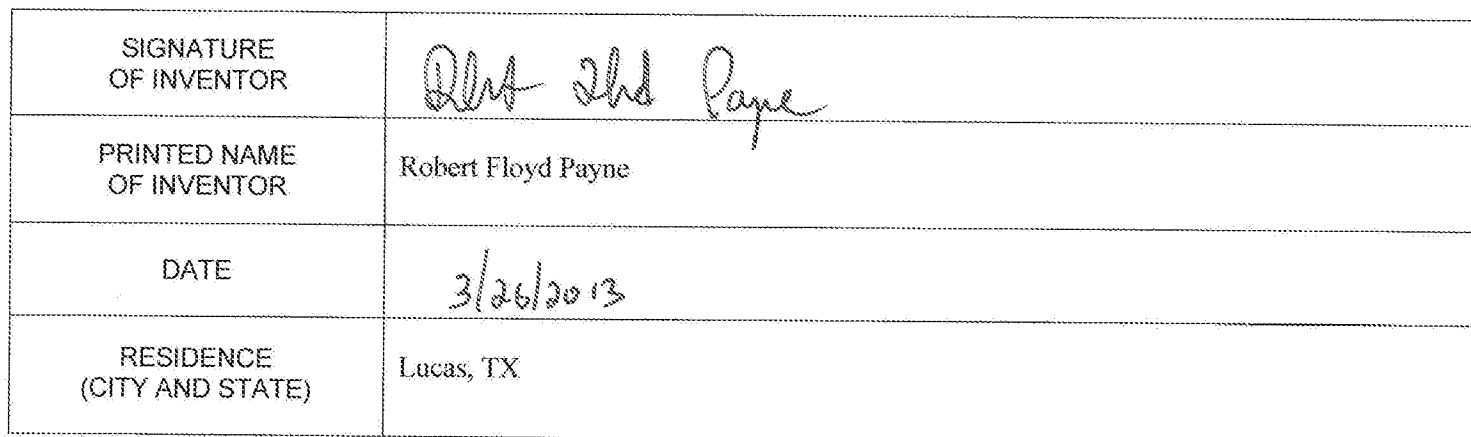 SIGNATURE
OF INVENTOR
Payne
PRINTED NAME
OF INVENTOR
Robert Floyd Payne
DATE
3/26/2013
RESIDENCE
(CITY AND STATE)
Lucas, TX